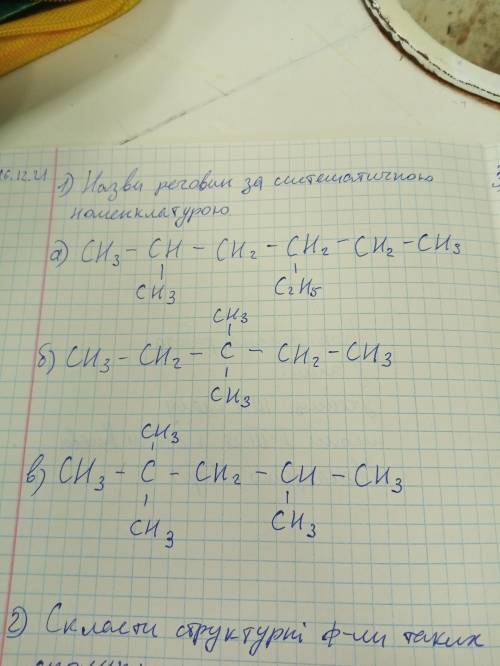 16.12.21
1) Назви речовин за систематичною
номенклатурою
а) CH3 - CH - CH2 - CH2 - CH2 - CH3
CH3 C2H5
CH3
б) CH3 - CH2 - C - CH2 - CH3
CH3
CH3
в) CH3 - C - CH2 - CH - CH3
CH3 CH3
2) Скласти структурні ф-ли таких